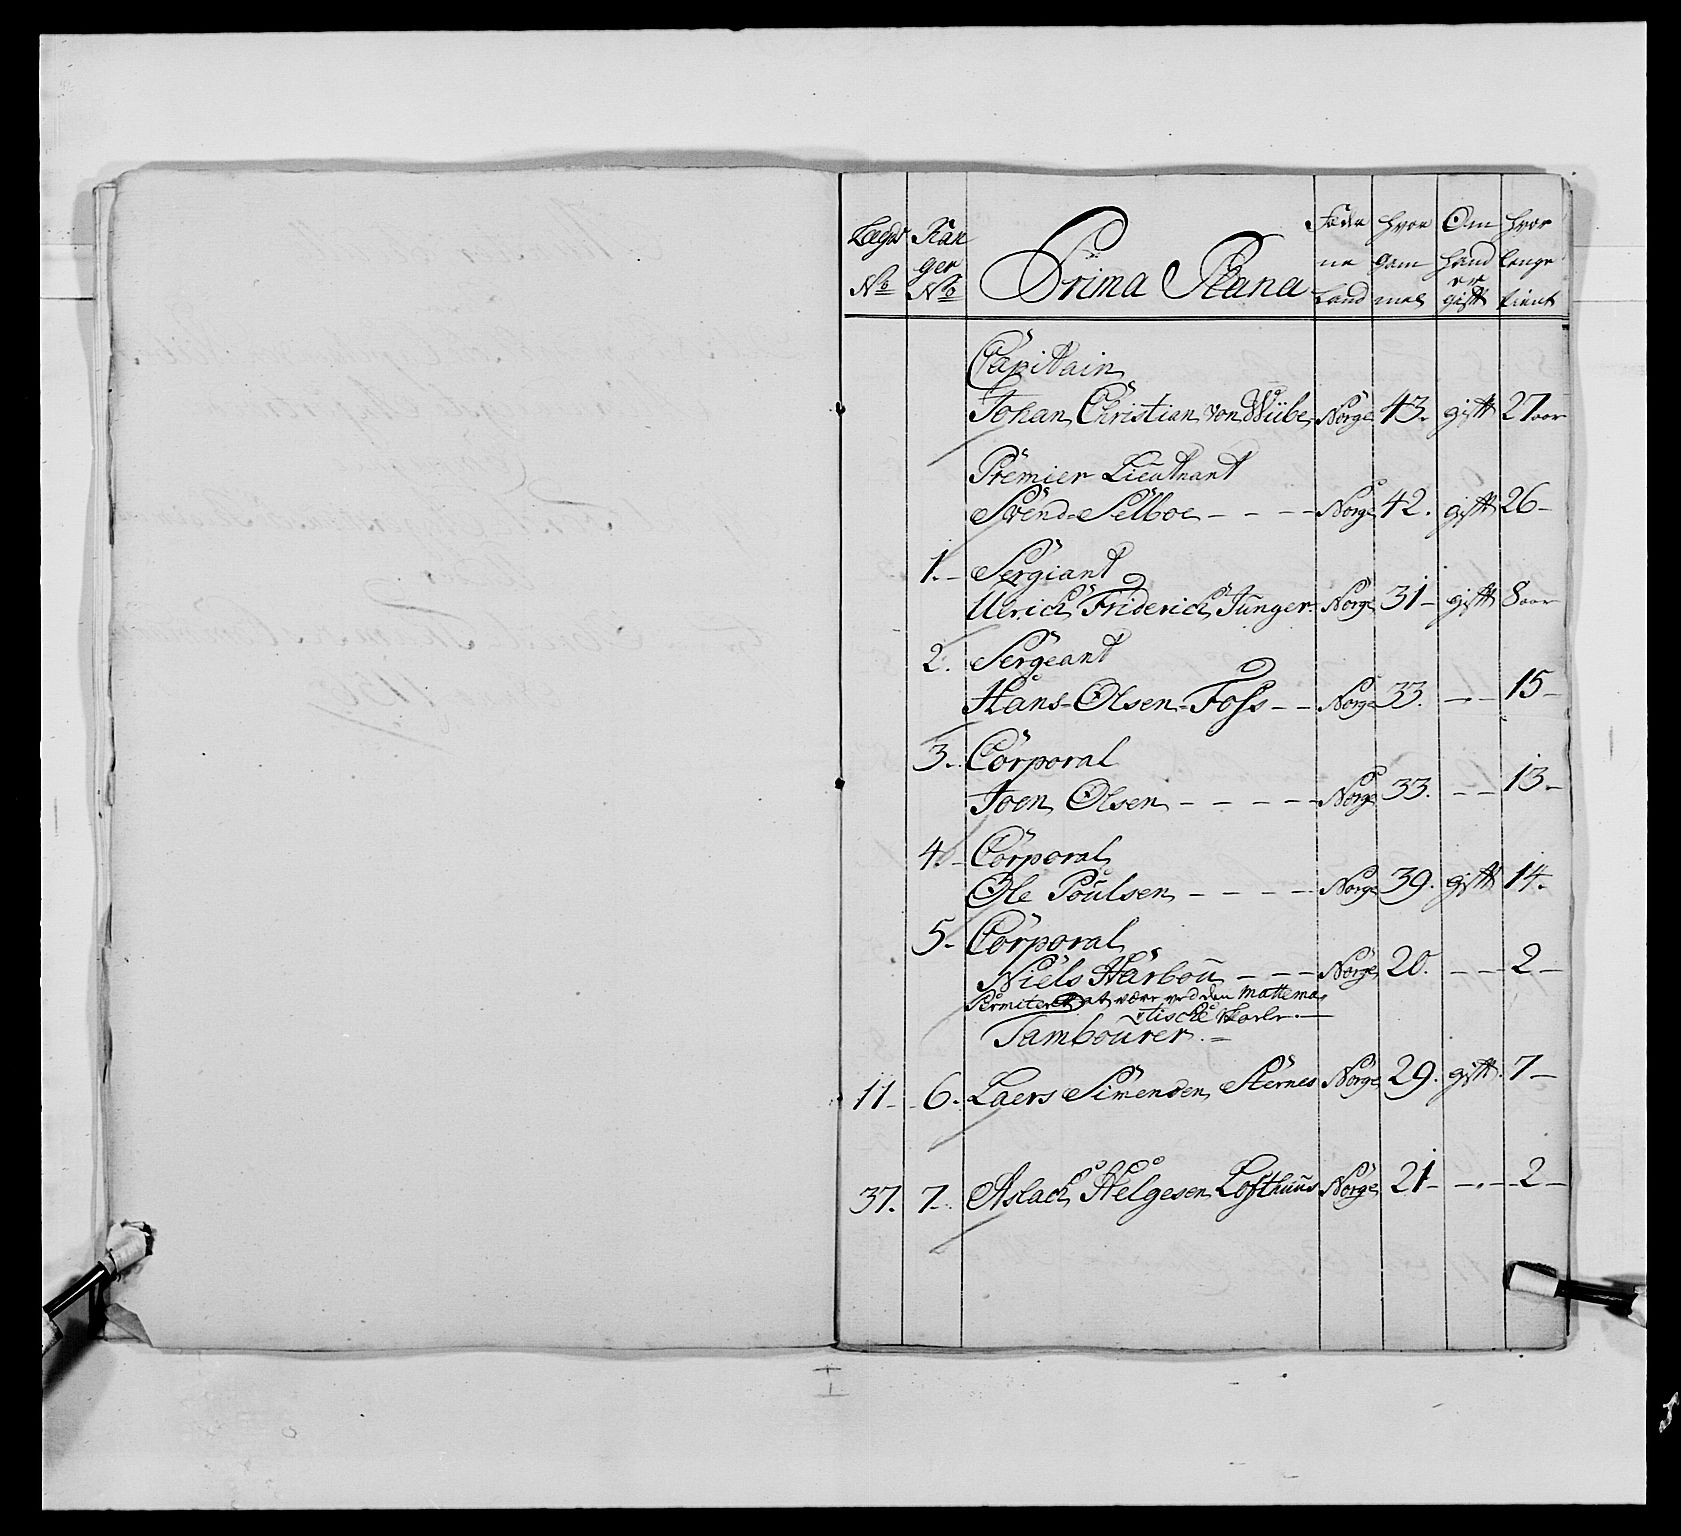 Legds N:o Ran ger N:o Prima Plana Føde ne Land hvor gam mel Om hand er gift hvor lenge tient
Capitain
Johan Christian von Wübe Norge 43. gift 27 aar
Premier Lieutnant
Svend Selboe - - - - Norge 42. gift 26 -
1. - Sergiant
Ulrich Friderich Junger Norge 31 - gift 8 aar
2. Sergeant
Hans Olsen Foss - - Norge 33. - . - 15 -
3. Corporal
Joen Olsen - - - - - Norge 33. - - 13 -
4. - Corporal
Ole Poulsen - - - - Norge 39. gift 14 -
5 - Corporal
Niels Harbou - - - Norge 20. - - 2 -
Permiteret at være ved den mattema
tische Skole. -
Tambourer. =
11 - 6. Laers Simensen Sternes Norge 29. gift. 7 -
37. 7 - Aslach Helgesen Lofthuus Norge 21 - - . - 2 -